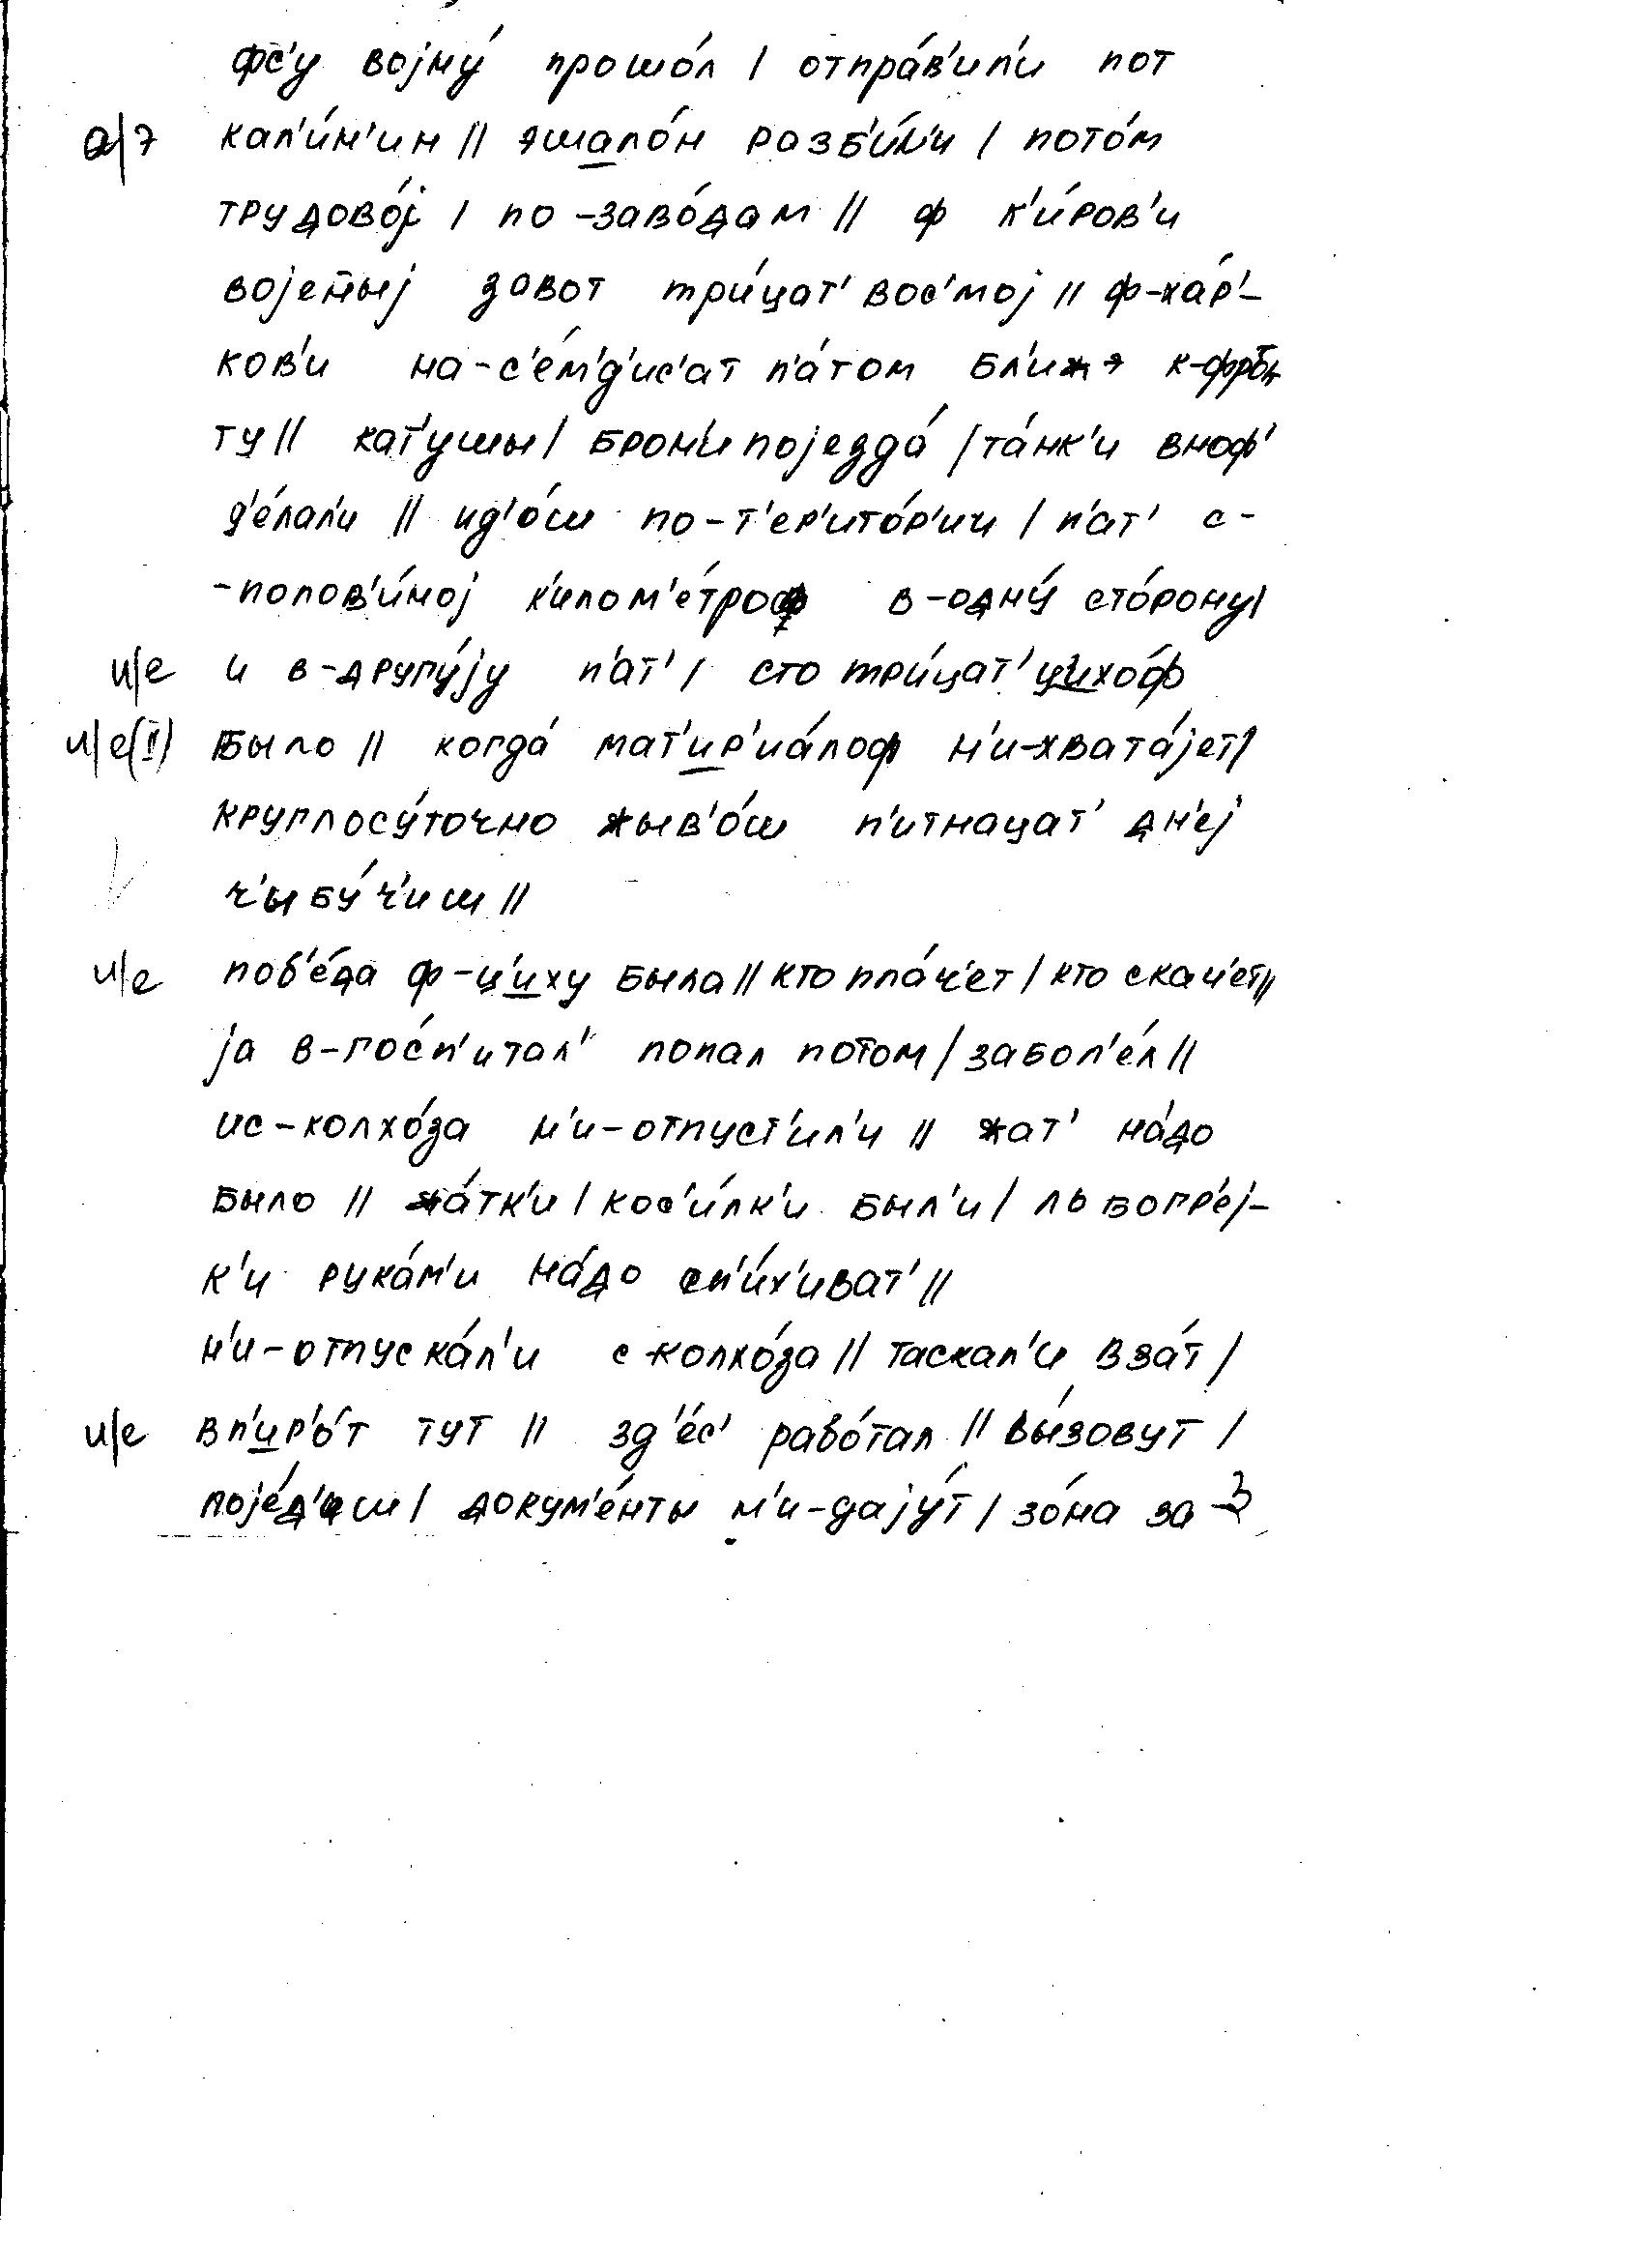 фс'у војну́ прошо́л / отпра́в'ил'и пот
а/э кал'и́н'ин // эшало́н разб'и́л'и / пото́м
трудово́ј / по-заво́дам // ф к'и́ров'и
војеныј завот три́цат' вос'мој // ф-ха́р'-
ков'и на-с'е́м'д'ис'ат п'а́том бл'ижэ к-фро́н
ту // кат'ушы / брон'ипојезда́ / та́нк'и вноф'
д'е́лал'и // ид'о́ш по-т'ер'ито́р'ии / п'ат' с-
-полов'и́ној к'илом'е́троф в-одну́ сто́рону /
и/е и в-другу́ју п'ат' / сто три́цат' ц'ихо́ф
и/е(II) было // когда́ мат'ир'иа́лоф н'и-хвата́јет /
круглосу́точно жыв'о́ш п'итнацат' дн'еј
ч'ыбу́ч'иш //
и/е поб'е́да ф-ц'иху была // кто пла́ч'ет / кто скач'ет //
ја в-го́сп'итал' попал потом / забол'е́л //
ис-колхо́за н'и-отпуст'ил'и // жат' на́до
было // жа́тк'и / кос'и́лк'и был'и / лобогр'еј-
к'и рука́м'и на́до сп'и́х'иват' //
н'и-отпуска́л'и с колхо́за // таскал'и вза́т /
и/е вп'ир'о́т тут // зд'е́с' рабо́тал // вы́зовут /
пoје́д'иш / докум'е́нты н'и-дају́т / зо́на за-